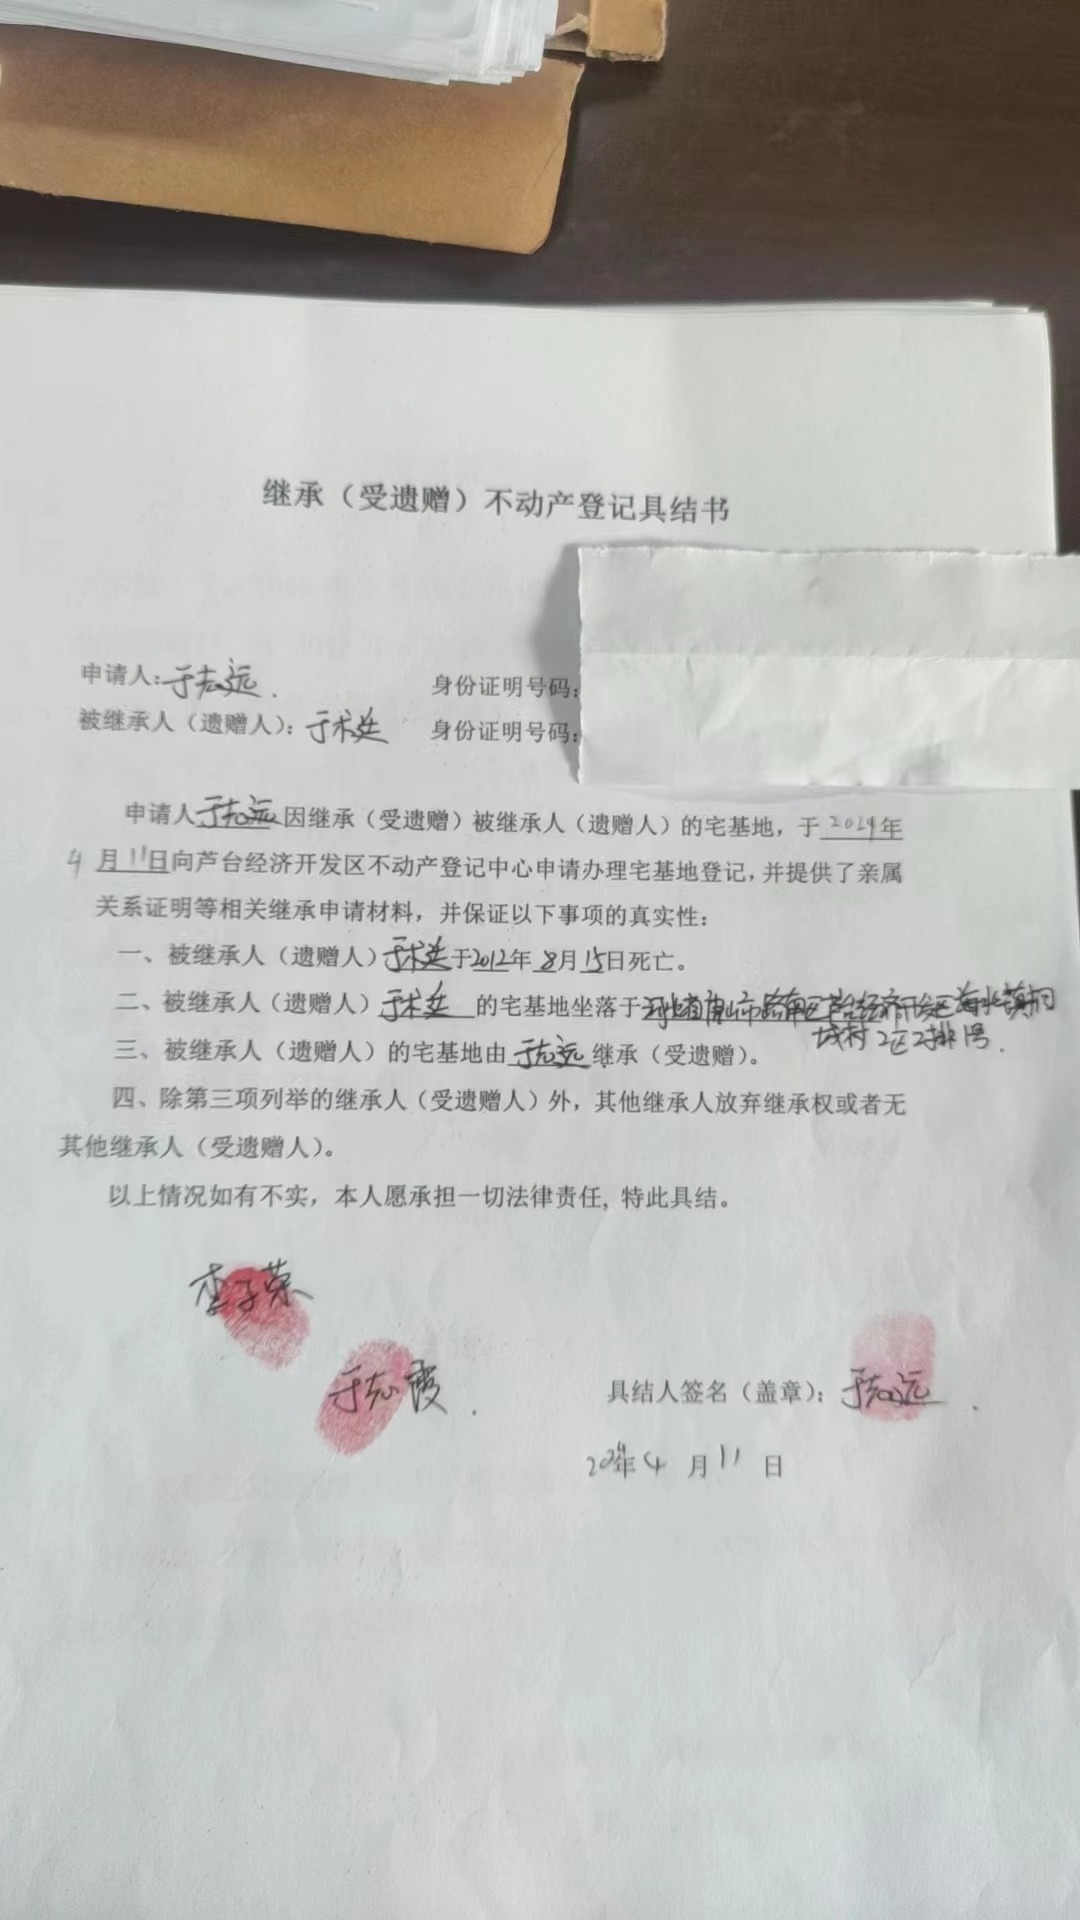 继承（受遗赠）不动产登记具结书
申请人：于志远.　身份证明号码：
被继承人（遗赠人）：于术廷　身份证明号码：
申请人于志远因继承（受遗赠）被继承人（遗赠人）的宅基地，于2024年
4月11日向芦台经济开发区不动产登记中心申请办理宅基地登记，并提供了亲属
关系证明等相关继承申请材料，并保证以下事项的真实性：
一、被继承人（遗赠人）于术廷于2012年8月15日死亡。
二、被继承人（遗赠人）于术廷的宅基地坐落于河北省唐山市路南区芦台经济开发区海北镇
城村2区2排1号.
三、被继承人（遗赠人）的宅基地由于志远继承（受遗赠）。
四、除第三项列举的继承人（受遗赠人）外，其他继承人放弃继承权或者无
其他继承人（受遗赠人）。
以上情况如有不实，本人愿承担一切法律责任, 特此具结。
李子荣
于志霞.
具结人签名（盖章）：于志远.
2024年4月11日